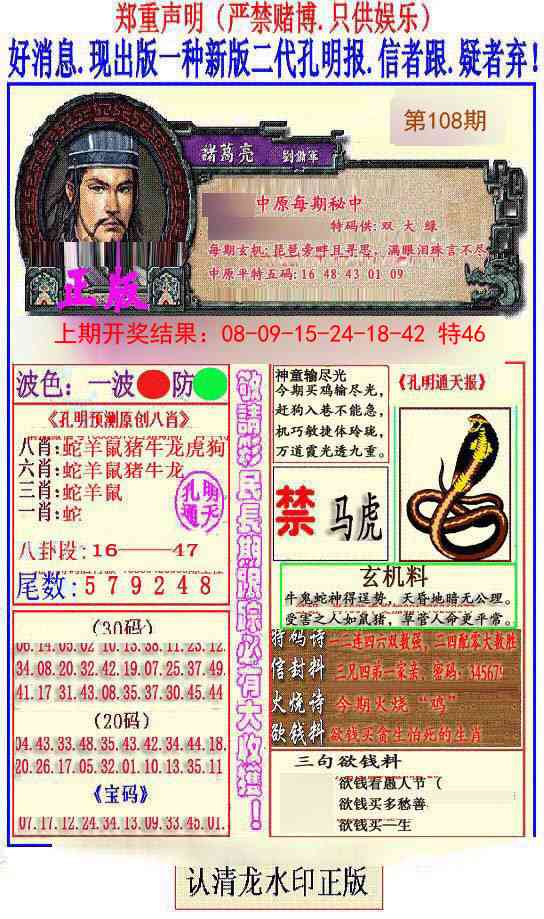 郑重声明（严禁赌博.只供娱乐）
好消息.现出版一种新版二代孔明报.信者跟.疑者弃！
第108期
諸葛亮 劉備軍
中原每期秘中
特码供:双 大 緑
每期玄机:琵琶旁畔且寻思，满眼泪珠言不尽
中原平特五码:16 48 43 01 09
正版
上期开奖结果：08-09-15-24-18-42 特46
波色：一波 防
《孔明预测原创八肖》
八肖:蛇羊鼠猪牛龙虎狗
六肖:蛇羊鼠猪牛龙
三肖:蛇羊鼠
一肖:蛇
孔明
通天
八卦段:16——47
尾数:579248
(30码)
06.14.05.02 10.13.38.11.23.12.
34.08.20.32.42.19.07.25.37.49.
41.17.31.43.08.35.37.30.45.44
(20码)
04.43.33.48.35.43.42.34.44.18.
20.26.17.05.32.01.10.13.35.11
《宝码》
07.17.12.24.34.13.09.33.45.01.
敬請彩民長期跟踪必有大收獲！
神童输尽光
今期买鸡输尽光，
赶狗入巷不能急，
机巧敏捷体玲珑，
万道霞光透九重。
《孔明通天报》
禁 马虎
玄机料
牛鬼蛇神得逞势，天昏地暗无公理。
受害之人如鼠猪，草菅人命更平常。
特码诗 一二连四六双数强，三四配零大数胜
信封料 三兄四弟一家亲，密码：345679
火烧诗 今期火烧“鸡”
欲钱料 欲钱买贪生怕死的生肖
三句欲钱料
欲钱看愚人节（
欲钱买多愁善
欲钱买一生
认清龙水印正版